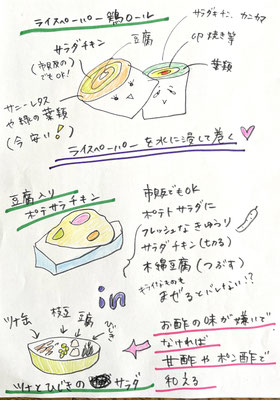 ライスペーパー鶏ロール
サラダチキン
(市販の
でもOK!)
豆腐
サラダチキン、カニカマ
葉類
サニーレタス
や緑の葉類
(今安い!)
ライスペーパーを水に浸して巻く
豆腐入り
ポテサラチキン
市販でもOK
ポテトサラダに
フレッシュなきゅうり
サラダチキン(切る)
木綿豆腐(つぶす)
キライなものも
まぜるとバレない!?
in
ツナ缶
枝豆
豆腐
ひじき
ツナとひじきのサラダ
お酢の味が嫌いで
なければ
甘酢やポン酢で
和える